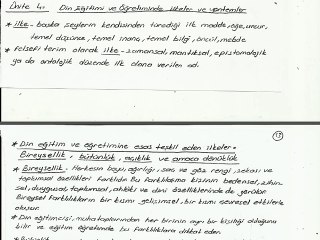 Ünite 4: Din eğitimi ve Öğretiminde ilkeler ve yöntemler
* ilke - başka şeylerin kendisinden türediği ilk madde, öğe, unsur,
temel düşünce, temel inanç, temel bilgi, öncül, mebde
* Felsefi terim olarak ilke - zamansal, mantıksal, epistomolojik
ya da ontolojik düzende ilk olana verilen ad.
13
* Din eğitim ve öğretimine esas teşkil eden ilkeler -
Bireysellik, bütünlük, açıklık ve amaca dönüklük
* Bireysellik - Herkesin boyu, ağırlığı, saç ve göz rengi, zekası ve
toplumsal özellikleri farklıdır. Bu farklılaşma kişinin bedensel, zihin-
sel, duygusal, toplumsal, ahlâki ve dini özelliklerinde de görülür.
Bireysel farklılıkların bir kısmı gelişimsel, bir kısmı çevresel etkilerle
oluşur.
* Din eğitimcisi, muhataplarından her birinin ayrı bir kişiliği olduğunu
bilir ve eğitim öğretimde bu farklılıklara dikkat eder.